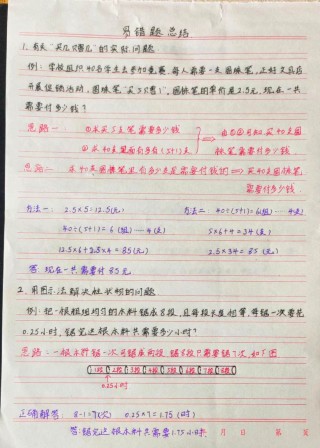 易错题总结
1. 有关“买几赠几”的实际问题
例：学校组织40名学生去参加竞赛，每人需要一支圆珠笔，正好文具店
开展促销活动，圆珠笔“买5赠1”，圆珠笔的单价是2.5元，现在一共
需要付多少钱？
思路一 ①求买了5支笔需要多少钱
②求40支里面有多少(5+1)支
由①②可知买40支圆
珠笔需要付多少钱.
思路二 求40支圆珠笔里有多少支是需要付钱的 ⇒ 买40支圆珠笔
需要付多少钱.
方法一： 2.5×5=12.5(元) 方法二：40÷(5+1)=6(组)……4(支)
40÷(5+1)=6(组)……4(支) 5×6+4=34(支)
12.5×6+2.5×4=85(元) 2.5×34=85(元)
答：现在一共需要付85元
2. 用图示法解决植状的问题
例：把一根粗细均匀的木料锯成8段，且每段长度相等，每锯一次要花
0.25小时，锯完这根木料共需要多少小时？
思路：一根木料锯一次可锯成两段，锯8段只需要锯7次，如下图
1段 2段 3段 4段 5段 6段 7段 8段
0.25小时
正确解答： 8-1=7(次) 0.25×7=1.75(时)
答：锯完这根木料共需要1.75小时.
月 日 第 页